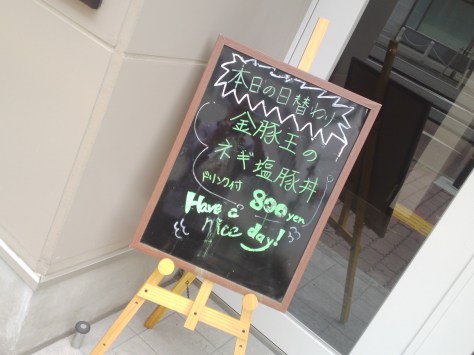 本日の日替わり
金豚王の
ネギ塩豚丼
ドリンク付 800yen
Have a
nice day!